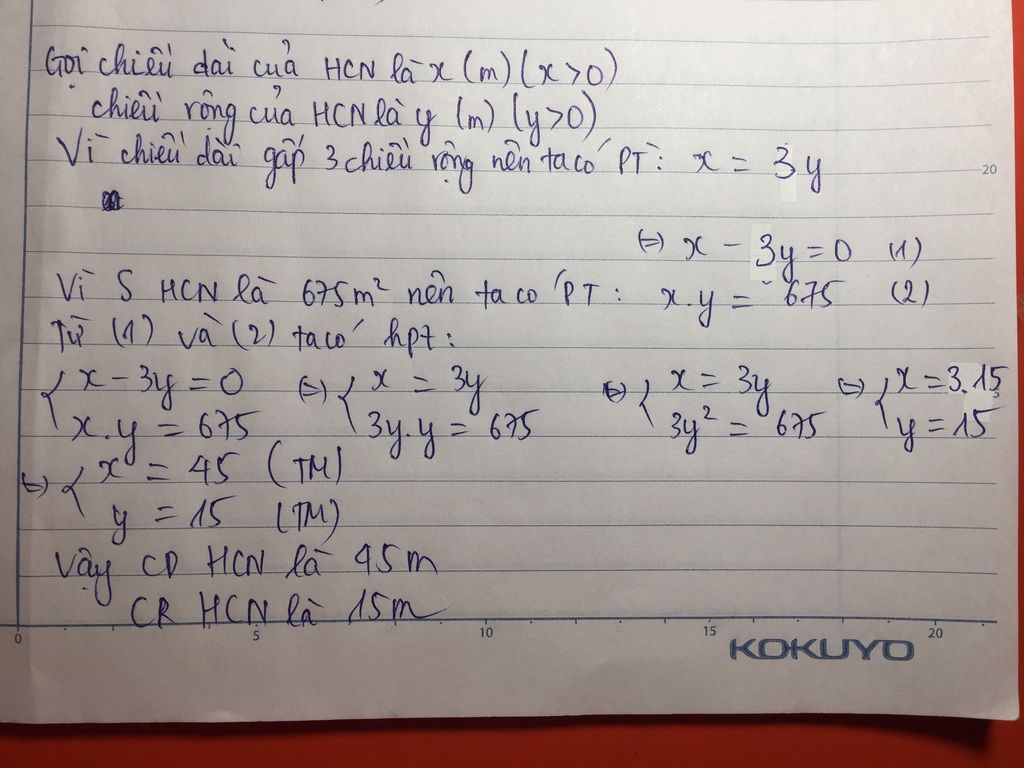 Gọi chiều dài của HCN là x (m) (x>0)
chiều rộng của HCN là y (m) (y>0)
Vì chiều dài gấp 3 chiều rộng nên ta có PT: x = 3y
20
⇔ x - 3y = 0 (1)
Vì S HCN là 675m² nên ta có PT: x.y = 675 (2)
Từ (1) và (2) ta có hpt:
{ x - 3y = 0 ⇔ { x = 3y ⇔ { x = 3y ⇔ { x = 3.15
x.y = 675 3y.y = 675 3y² = 675 y = 15
⇔ { x = 45 (TM)
y = 15 (TM)
Vậy CD HCN là 45m
CR HCN là 15m
0 5 10 15 20
KOKUYO